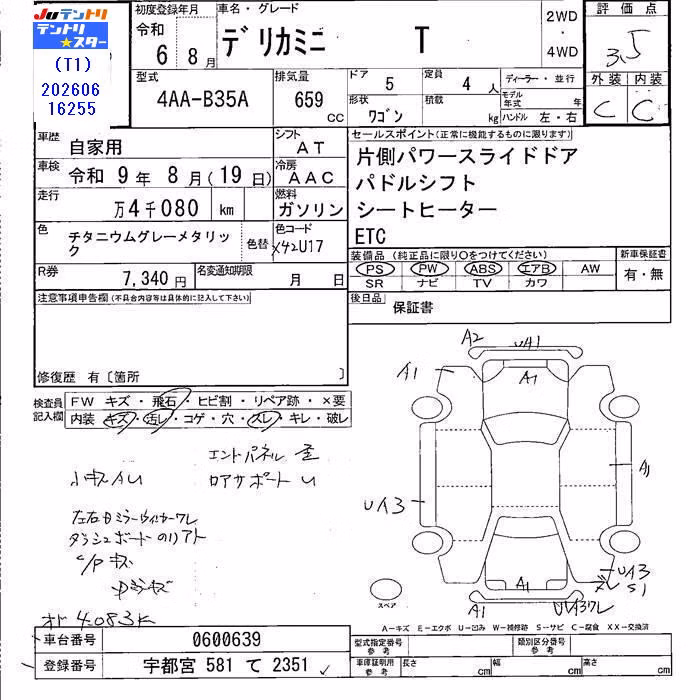 JUテントリ
テントリ★スター
(T1)
202606
16255
初度登録年月
令和
6年8月
車名・グレード
デリカミニ T
2WD
・
4WD
評価点
3.5
外装 内装
C C
型式
4AA-B35A
排気量
659 CC
ドア 5
定員 4人
形状 ワゴン
積載 kg
ディーラー・並行
モデル年式 年
ハンドル 左・右
車歴 自家用
シフト AT
車検 令和 9年 8月(19日)
冷房 AAC
走行 万4千080 km
燃料 ガソリン
色 チタニウムグレーメタリック
色替
色コード X42U17
R券 7,340円
名変通知期限 月 日
セールスポイント(正常に機能するものに限ります)
片側パワースライドドア
パドルシフト
シートヒーター
ETC
装備品 (純正品に限り○をつけてください)
PS PW ABS エアB AW
SR ナビ TV カワ
新車保証書
有・無
後日品 保証書
注意事項申告欄(不具合内容等は具体的に記入して下さい)
修復歴 有〔箇所 〕
検査員記入欄
FW キズ・飛石・ヒビ割・リペア跡・×要
内装 キズ・汚レ・コゲ・穴・スレ・キレ・破レ
小キズAU
エンドパネル
ロアサポート U
左右ドミラーウィカーワレ
ダッシュボードのリアト
C/P キズ
オド 4.083K
A2
UA1
A1
A1
A1
UA3
UA3
S1
A1
A1
UA3ワレ
スペア
A－キズ E－エクボ U－凹み W－補修跡 S－サビ C－腐食 XX－交換済
車台番号 0600639
登録番号 宇都宮 581 て 2351
型式指定番号 参考
類別区分番号 参考
車庫証明用 参考
長さ cm
幅 cm
高さ cm